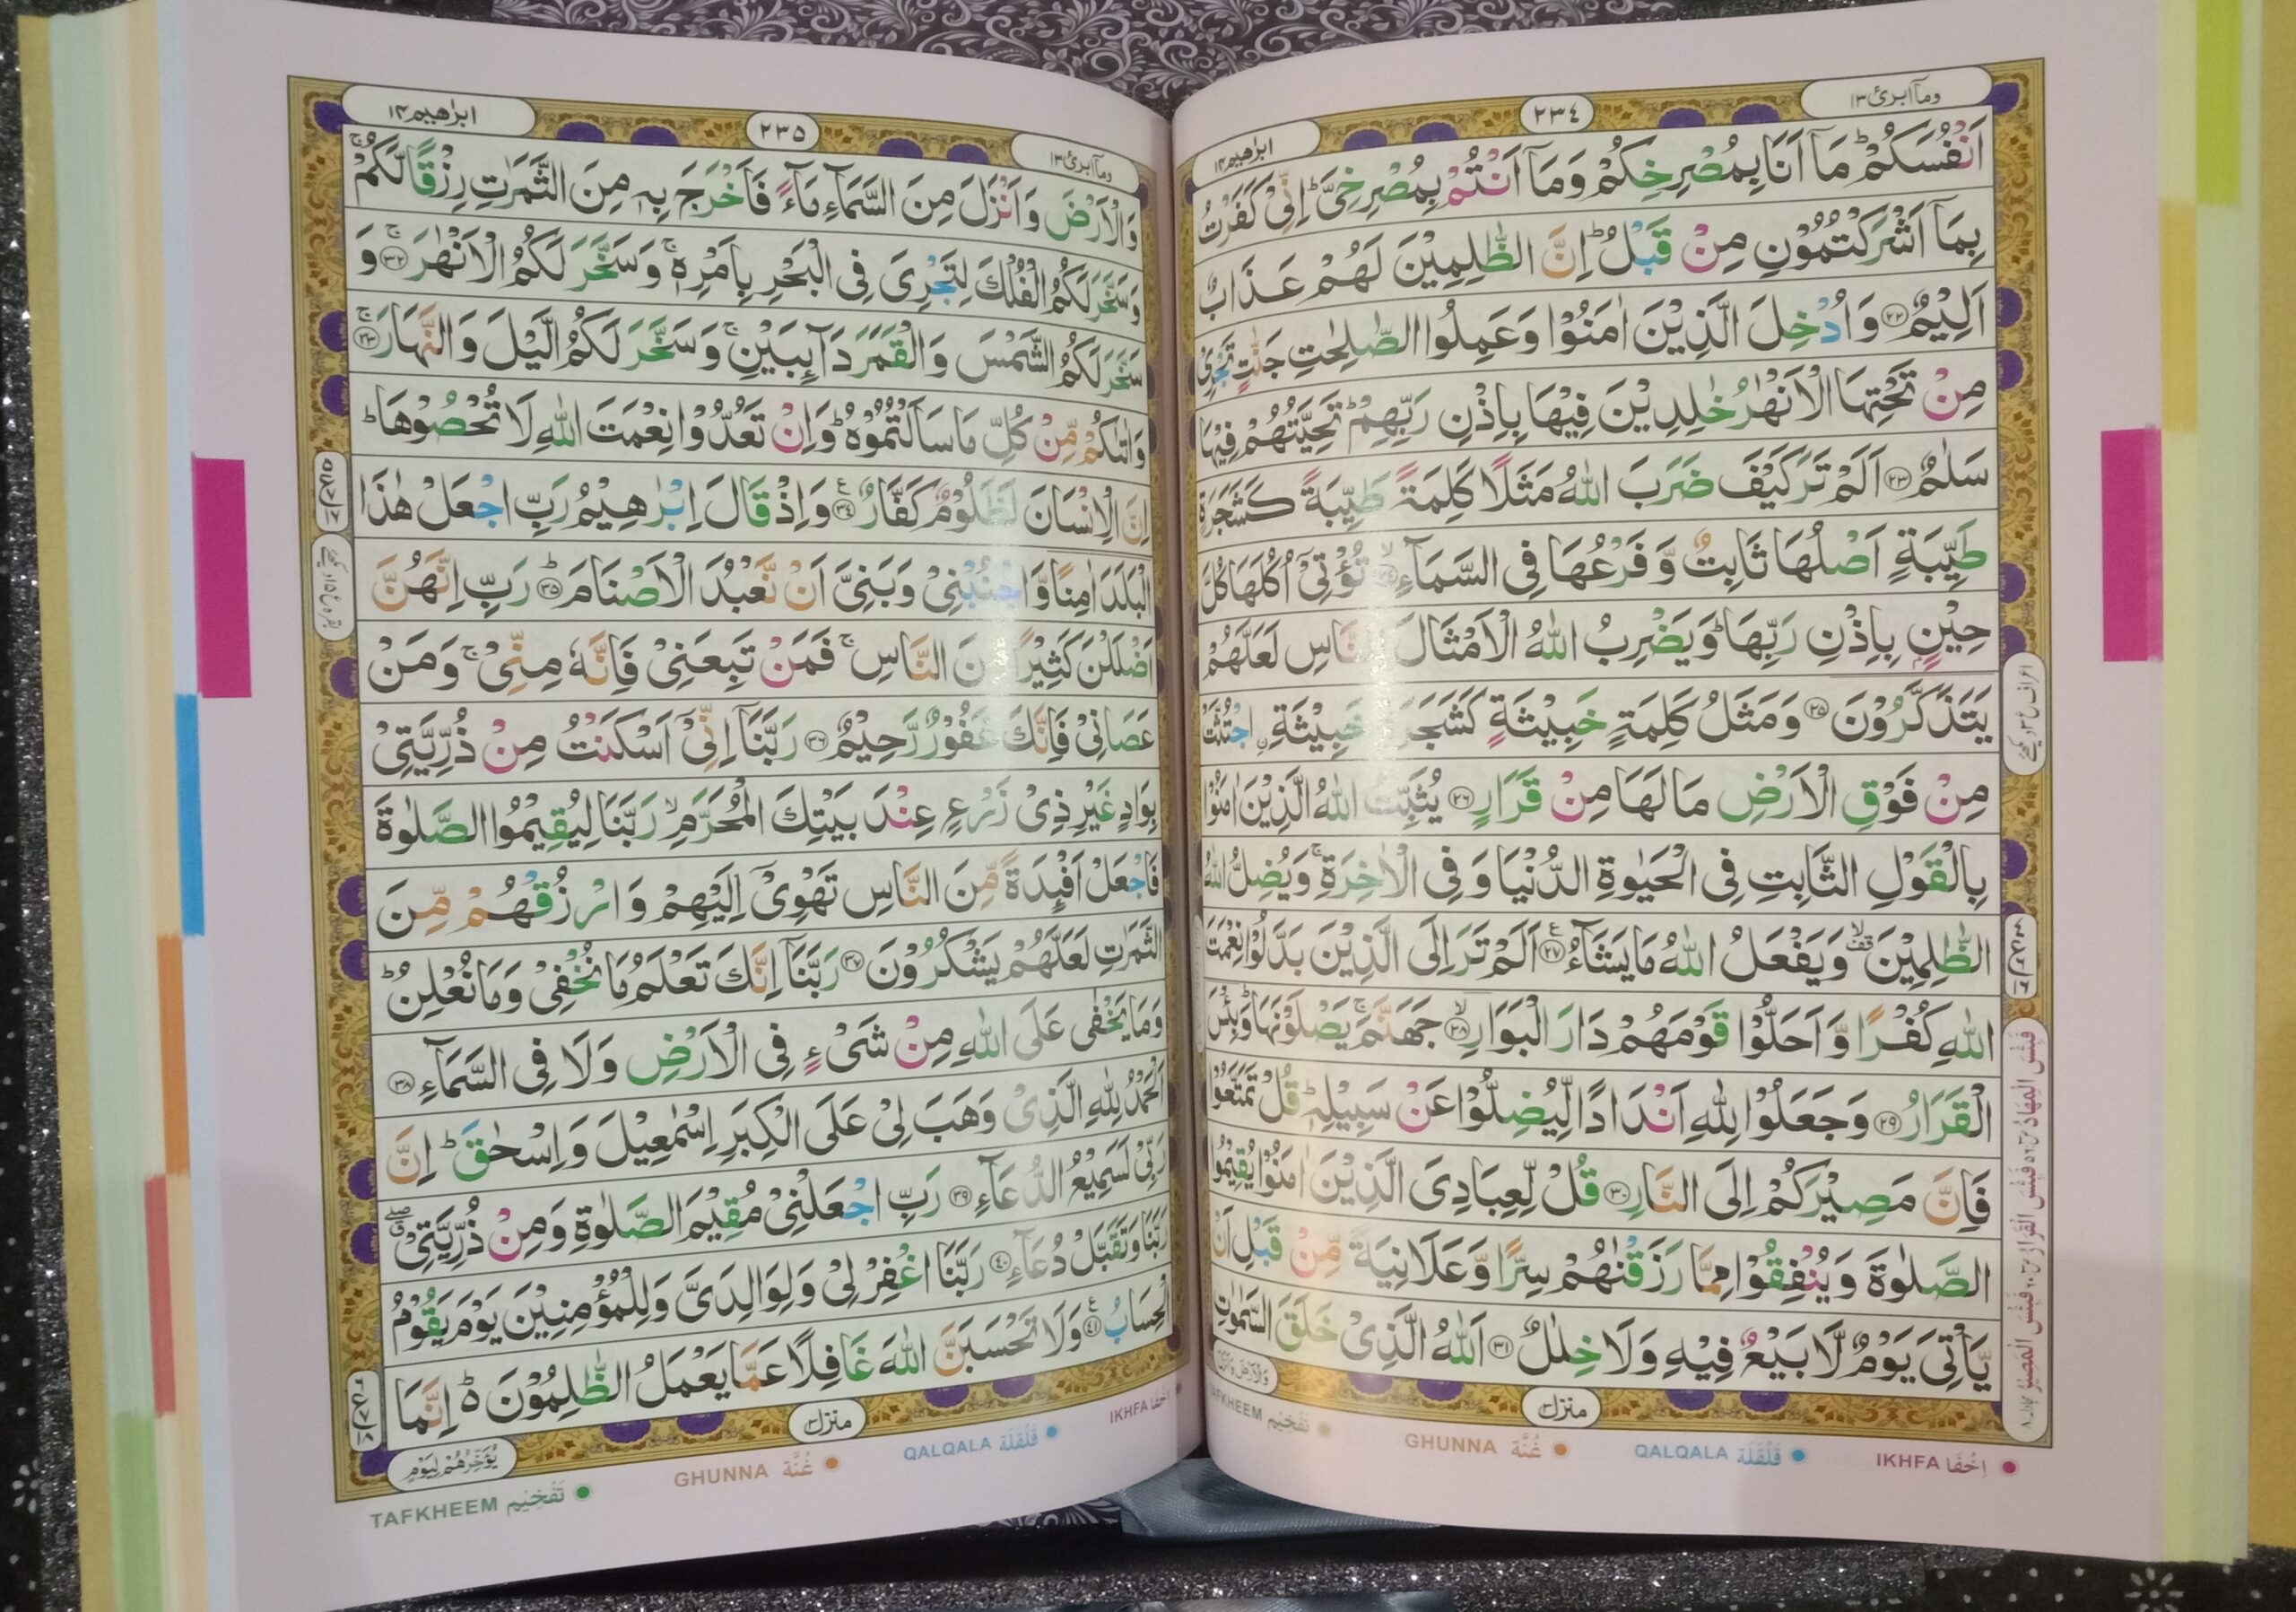 ابرٰهيم ١٤
٢٣٤
ومآ ابرئ ١٣
اَنْفُسَكُمْ ؕ مَاۤ اَنَا بِمُصْرِخِكُمْ وَمَاۤ اَنْتُمْ بِمُصْرِخِیَّ ؕ اِنِّیْ كَفَرْتُ
بِمَاۤ اَشْرَكْتُمُوْنِ مِنْ قَبْلُ ؕ اِنَّ الظّٰلِمِیْنَ لَهُمْ عَذَابٌ
اَلِیْمٌ ﴿۲۲﴾ وَاُدْخِلَ الَّذِیْنَ اٰمَنُوْا وَعَمِلُوا الصّٰلِحٰتِ جَنّٰتٍ تَجْرِیْ
مِنْ تَحْتِهَا الْاَنْهٰرُ خٰلِدِیْنَ فِیْهَا بِاِذْنِ رَبِّهِمْ ؕ تَحِیَّتُهُمْ فِیْهَا
سَلٰمٌ ﴿۲۳﴾ اَلَمْ تَرَ كَیْفَ ضَرَبَ اللّٰهُ مَثَلًا كَلِمَةً طَیِّبَةً كَشَجَرَةٍ
طَیِّبَةٍ اَصْلُهَا ثَابِتٌ وَّفَرْعُهَا فِی السَّمَآءِ ﴿۲۴﴾ۙ تُؤْتِیْۤ اُكُلَهَا كُلَّ
حِیْنٍۭ بِاِذْنِ رَبِّهَا ؕ وَیَضْرِبُ اللّٰهُ الْاَمْثَالَ لِلنَّاسِ لَعَلَّهُمْ
یَتَذَكَّرُوْنَ ﴿۲۵﴾ وَمَثَلُ كَلِمَةٍ خَبِیْثَةٍ كَشَجَرَةٍ خَبِیْثَةِ ِۨاجْتُثَّتْ
مِنْ فَوْقِ الْاَرْضِ مَا لَهَا مِنْ قَرَارٍ ﴿۲۶﴾ یُثَبِّتُ اللّٰهُ الَّذِیْنَ اٰمَنُوْا
بِالْقَوْلِ الثَّابِتِ فِی الْحَیٰوةِ الدُّنْیَا وَفِی الْاٰخِرَةِ ۚ وَیُضِلُّ اللّٰهُ
الظّٰلِمِیْنَ ۙ۫ وَیَفْعَلُ اللّٰهُ مَا یَشَآءُ ﴿۲۷﴾ اَلَمْ تَرَ اِلَی الَّذِیْنَ بَدَّلُوْا نِعْمَتَ
اللّٰهِ كُفْرًا وَّاَحَلُّوْا قَوْمَهُمْ دَارَ الْبَوَارِ ﴿۲۸﴾ۙ جَهَنَّمَ ۚ یَصْلَوْنَهَا ؕ وَبِئْسَ
الْقَرَارُ ﴿۲۹﴾ وَجَعَلُوْا لِلّٰهِ اَنْدَادًا لِّیُضِلُّوْا عَنْ سَبِیْلِهٖ ؕ قُلْ تَمَتَّعُوْا
فَاِنَّ مَصِیْرَكُمْ اِلَی النَّارِ ﴿۳۰﴾ قُلْ لِّعِبَادِیَ الَّذِیْنَ اٰمَنُوْا یُقِیْمُوا
الصَّلٰوةَ وَیُنْفِقُوْا مِمَّا رَزَقْنٰهُمْ سِرًّا وَّعَلَانِیَةً مِّنْ قَبْلِ اَنْ
یَّاْتِیَ یَوْمٌ لَّا بَیْعٌ فِیْهِ وَلَا خِلٰلٌ ﴿۳۱﴾ اَللّٰهُ الَّذِیْ خَلَقَ السَّمٰوٰتِ
منزل ٣
IKHFA اِخْفَا
QALQALA قَلْقَلَة
GHUNNA غُنَّة
TAFKHEEM تَفْخِيْم
ابرٰهيم ١٤
٢٣٥
ومآ ابرئ ١٣
وَالْاَرْضَ وَاَنْزَلَ مِنَ السَّمَآءِ مَآءً فَاَخْرَجَ بِهٖ مِنَ الثَّمَرٰتِ رِزْقًا لَّكُمْ ۚ
وَسَخَّرَ لَكُمُ الْفُلْكَ لِتَجْرِیَ فِی الْبَحْرِ بِاَمْرِهٖ ۚ وَسَخَّرَ لَكُمُ الْاَنْهٰرَ ﴿۳۲﴾ۚ وَ
سَخَّرَ لَكُمُ الشَّمْسَ وَالْقَمَرَ دَآىِٕبَیْنِ ۚ وَسَخَّرَ لَكُمُ الَّیْلَ وَالنَّهَارَ ﴿۳۳﴾ۚ
وَاٰتٰىكُمْ مِّنْ كُلِّ مَا سَاَلْتُمُوْهُ ؕ وَاِنْ تَعُدُّوْا نِعْمَتَ اللّٰهِ لَا تُحْصُوْهَا ؕ
اِنَّ الْاِنْسَانَ لَظَلُوْمٌ كَفَّارٌ ﴿۳۴﴾ وَاِذْ قَالَ اِبْرٰهِیْمُ رَبِّ اجْعَلْ هٰذَا
الْبَلَدَ اٰمِنًا وَّاجْنُبْنِیْ وَبَنِیَّ اَنْ نَّعْبُدَ الْاَصْنَامَ ﴿۳۵﴾ؕ رَبِّ اِنَّهُنَّ
اَضْلَلْنَ كَثِیْرًا مِّنَ النَّاسِ ۚ فَمَنْ تَبِعَنِیْ فَاِنَّهٗ مِنِّیْ ۚ وَمَنْ
عَصَانِیْ فَاِنَّكَ غَفُوْرٌ رَّحِیْمٌ ﴿۳۶﴾ رَبَّنَاۤ اِنِّیْۤ اَسْكَنْتُ مِنْ ذُرِّیَّتِیْ
بِوَادٍ غَیْرِ ذِیْ زَرْعٍ عِنْدَ بَیْتِكَ الْمُحَرَّمِ ۙ رَبَّنَا لِیُقِیْمُوا الصَّلٰوةَ
فَاجْعَلْ اَفْىِٕدَةً مِّنَ النَّاسِ تَهْوِیْۤ اِلَیْهِمْ وَارْزُقْهُمْ مِّنَ
الثَّمَرٰتِ لَعَلَّهُمْ یَشْكُرُوْنَ ﴿۳۷﴾ رَبَّنَاۤ اِنَّكَ تَعْلَمُ مَا نُخْفِیْ وَمَا نُعْلِنُ ؕ
وَمَا یَخْفٰی عَلَی اللّٰهِ مِنْ شَیْءٍ فِی الْاَرْضِ وَلَا فِی السَّمَآءِ ﴿۳۸﴾
اَلْحَمْدُ لِلّٰهِ الَّذِیْ وَهَبَ لِیْ عَلَی الْكِبَرِ اِسْمٰعِیْلَ وَاِسْحٰقَ ؕ اِنَّ
رَبِّیْ لَسَمِیْعُ الدُّعَآءِ ﴿۳۹﴾ رَبِّ اجْعَلْنِیْ مُقِیْمَ الصَّلٰوةِ وَمِنْ ذُرِّیَّتِیْ
رَبَّنَا وَتَقَبَّلْ دُعَآءِ ﴿۴۰﴾ رَبَّنَا اغْفِرْ لِیْ وَلِوَالِدَیَّ وَلِلْمُؤْمِنِیْنَ یَوْمَ یَقُوْمُ
الْحِسَابُ ﴿۴۱﴾ وَلَا تَحْسَبَنَّ اللّٰهَ غَافِلًا عَمَّا یَعْمَلُ الظّٰلِمُوْنَ ؕ۬ اِنَّمَا
یُؤَخِّرُهُمْ لِیَوْمٍ
منزل ٣
IKHFA اِخْفَا
QALQALA قَلْقَلَة
GHUNNA غُنَّة
TAFKHEEM تَفْخِيْم